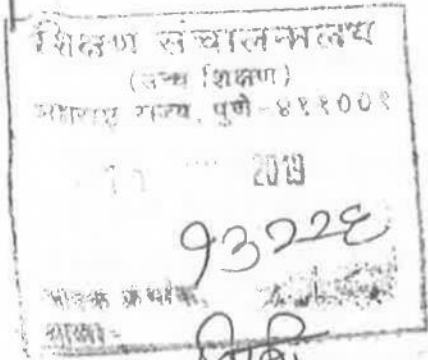 शिक्षण संचालनालय
(उच्च शिक्षण)
महाराष्ट्र राज्य, पुणे-४११००१
2019
१३२२६
आवक क्रमांक